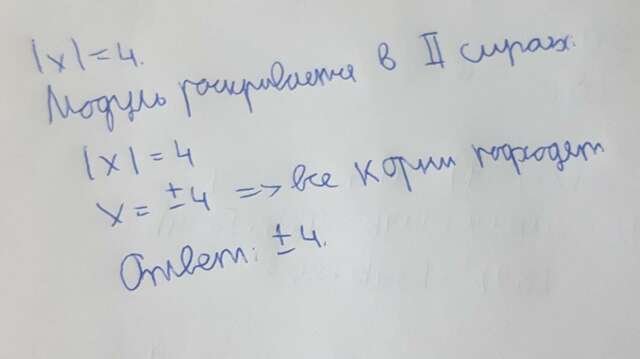 |x|=4.
Модуль раскрывается в II
|x|=4
x=±4 => все корни подходят
Ответ: ±4.